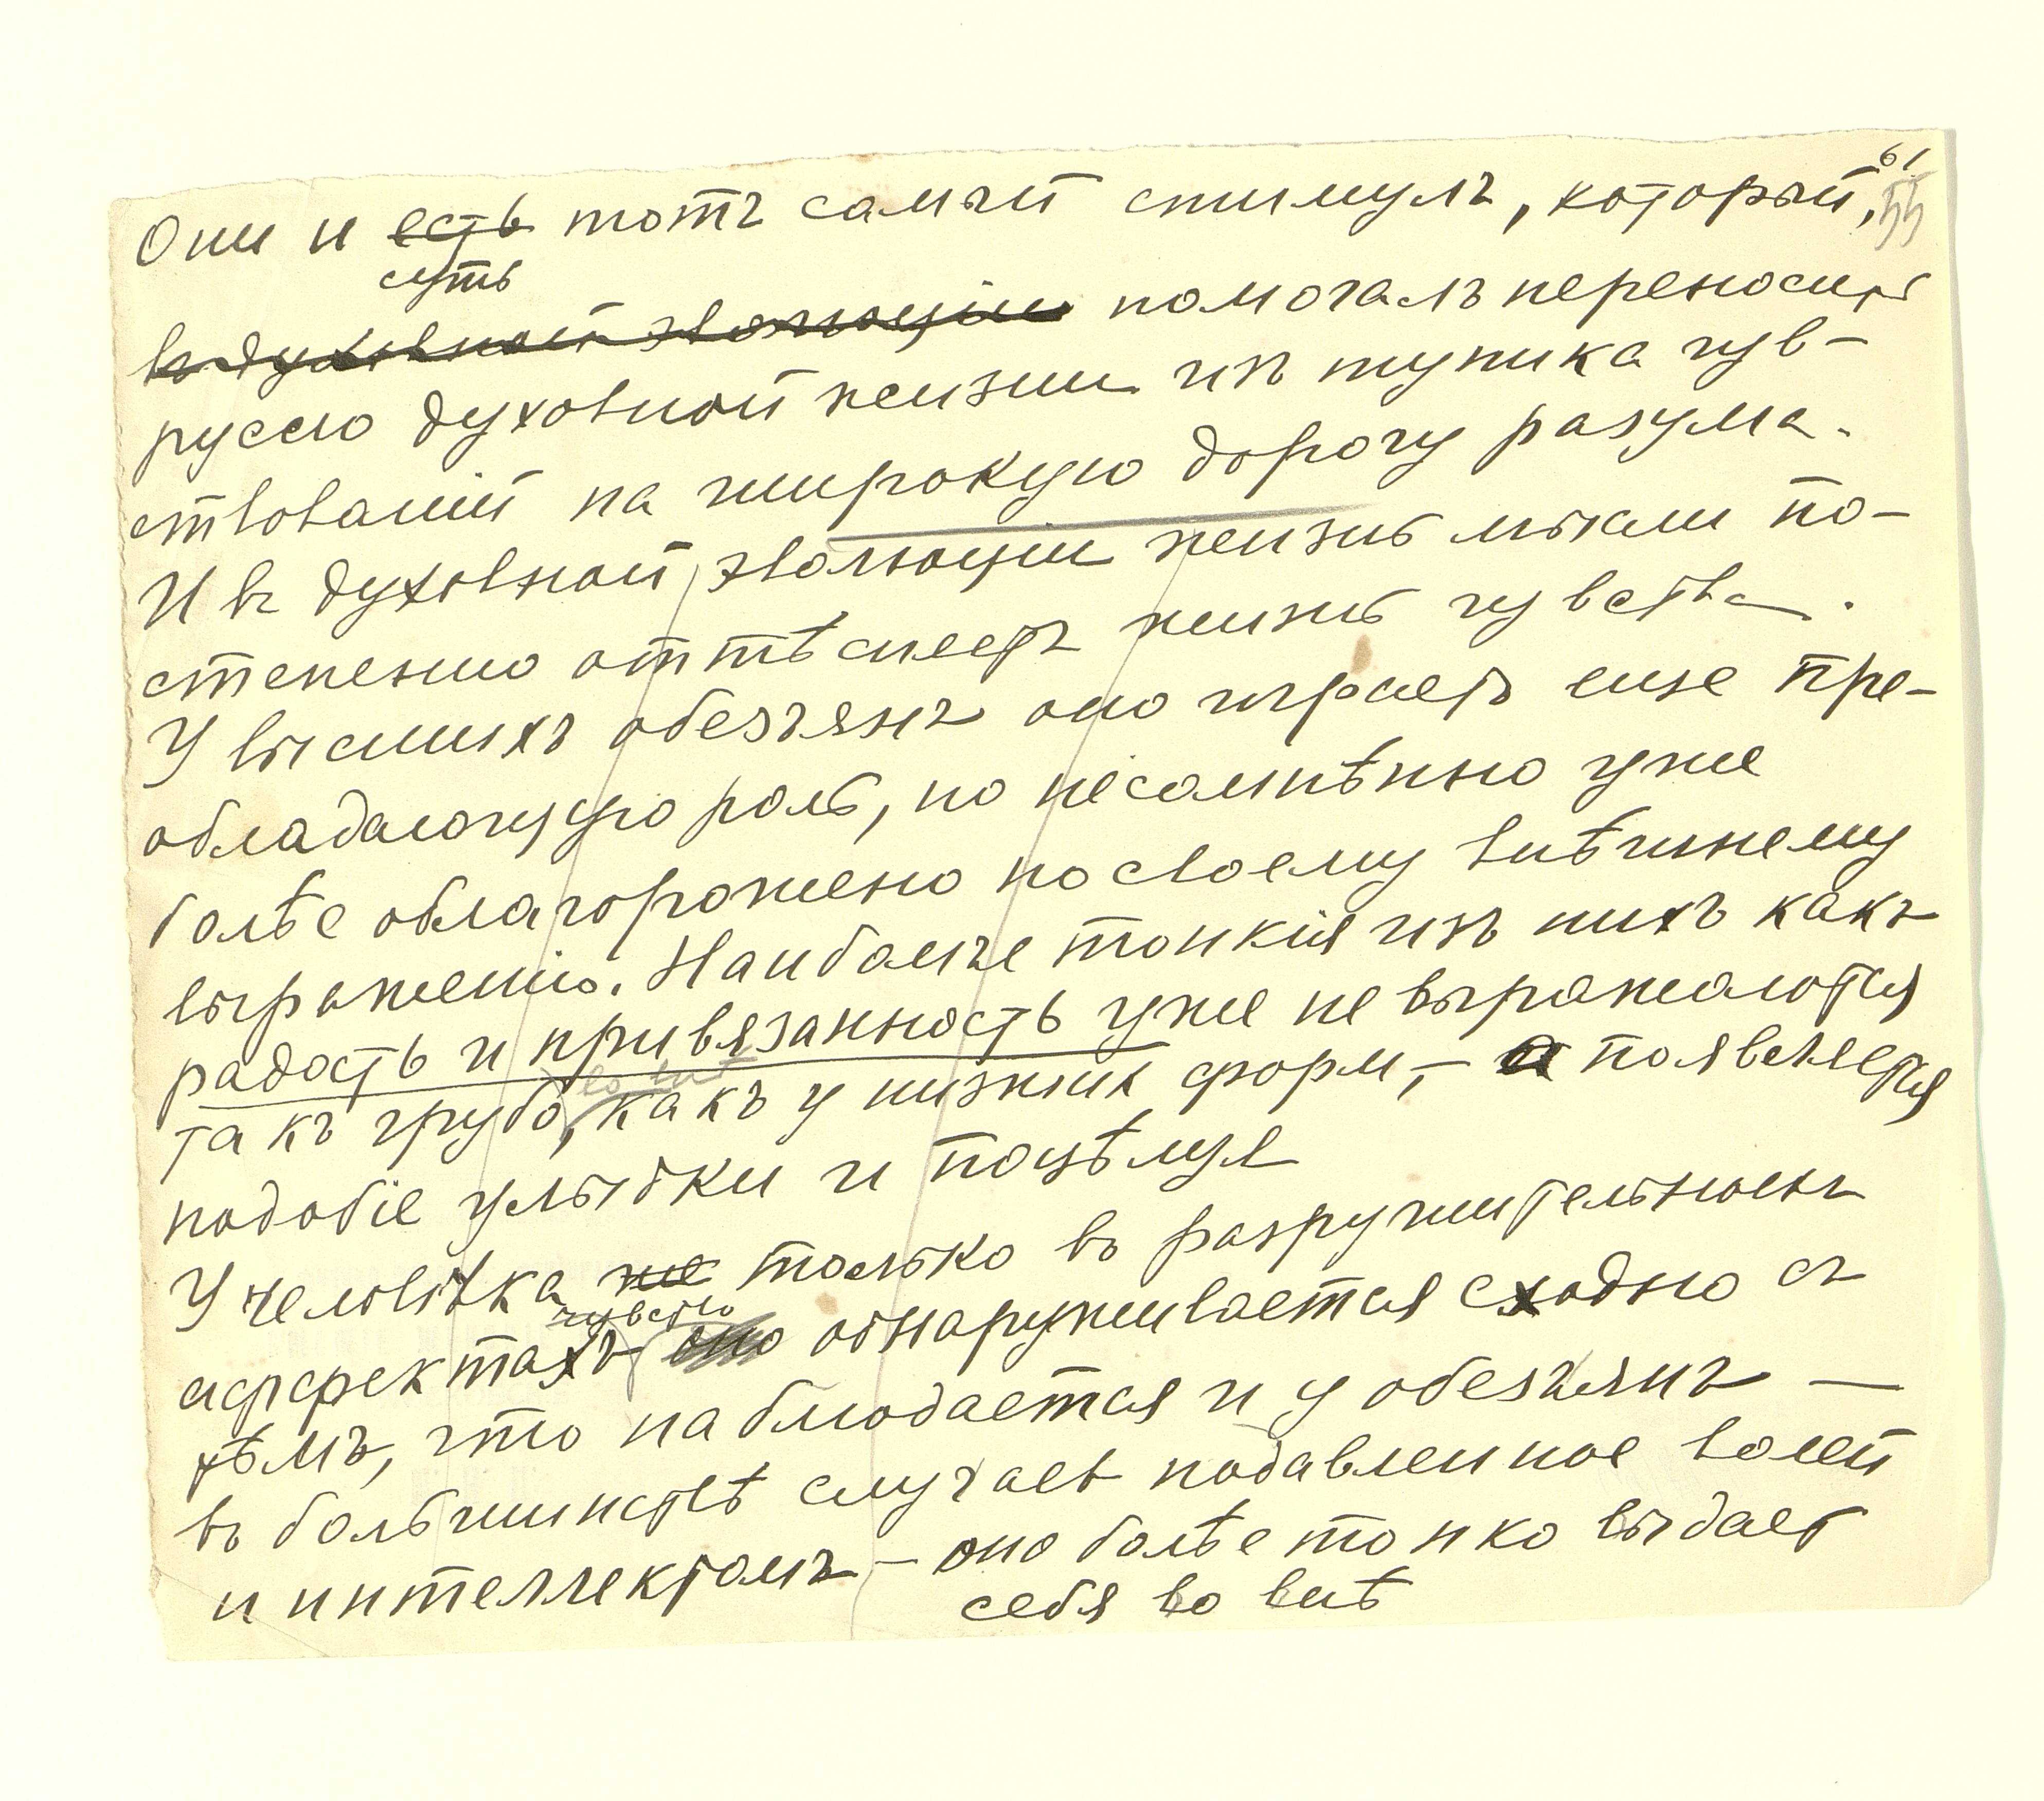 61
55
Они и есть тотъ самый стимулъ, который,
суть
въ духовной эволюціи помогалъ переносить
русло духовной жизни изъ тупика чув-
ствованій на широкую дорогу разума.
И въ духовной эволюціи жизнь мысли по-
степенно оттѣсняетъ жизнь чувства.
У высшихъ обезъянъ оно играетъ еще пре-
обладающую роль, но несомнѣнно уже
болѣе облагорожено по своему внѣшнему
выраженію. Наиболѣе тонкія изъ нихъ какъ
радость и привязанность уже не выражаются
во внѣ
такъ грубо, какъ у низших форм, – а появляется
подобіе улыбки и поцѣлуя
У человѣка же только въ разрушительныхъ
чувство
аффектахъ оно обнаруживается сходно съ
тѣмъ, что наблюдается и у обезъянъ —
въ большинствѣ случаевъ подавленное волей
и интеллектомъ – оно болѣе тонко выдает
себя во внѣ